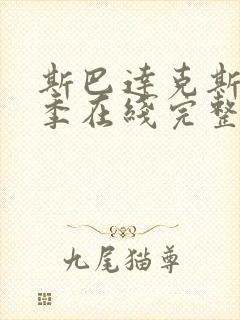 斯巴達克斯
季在綫完整
九尾猫尊